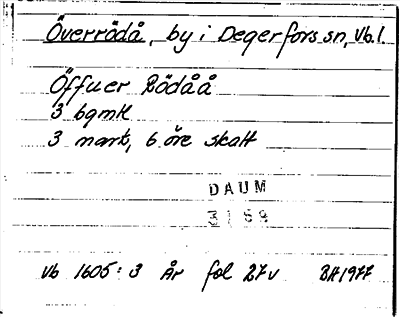 Överrödå, by i Degerfors sn, Vb.l.
Öffuer Rödåå
3 bgmk
3 mark, 6 öre skatt
DAUM
3159
Vb 1605: 3 År fol 27v BH 1977